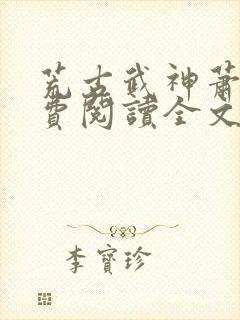 荒古武神蕭
費閱讀全文
李寶珍